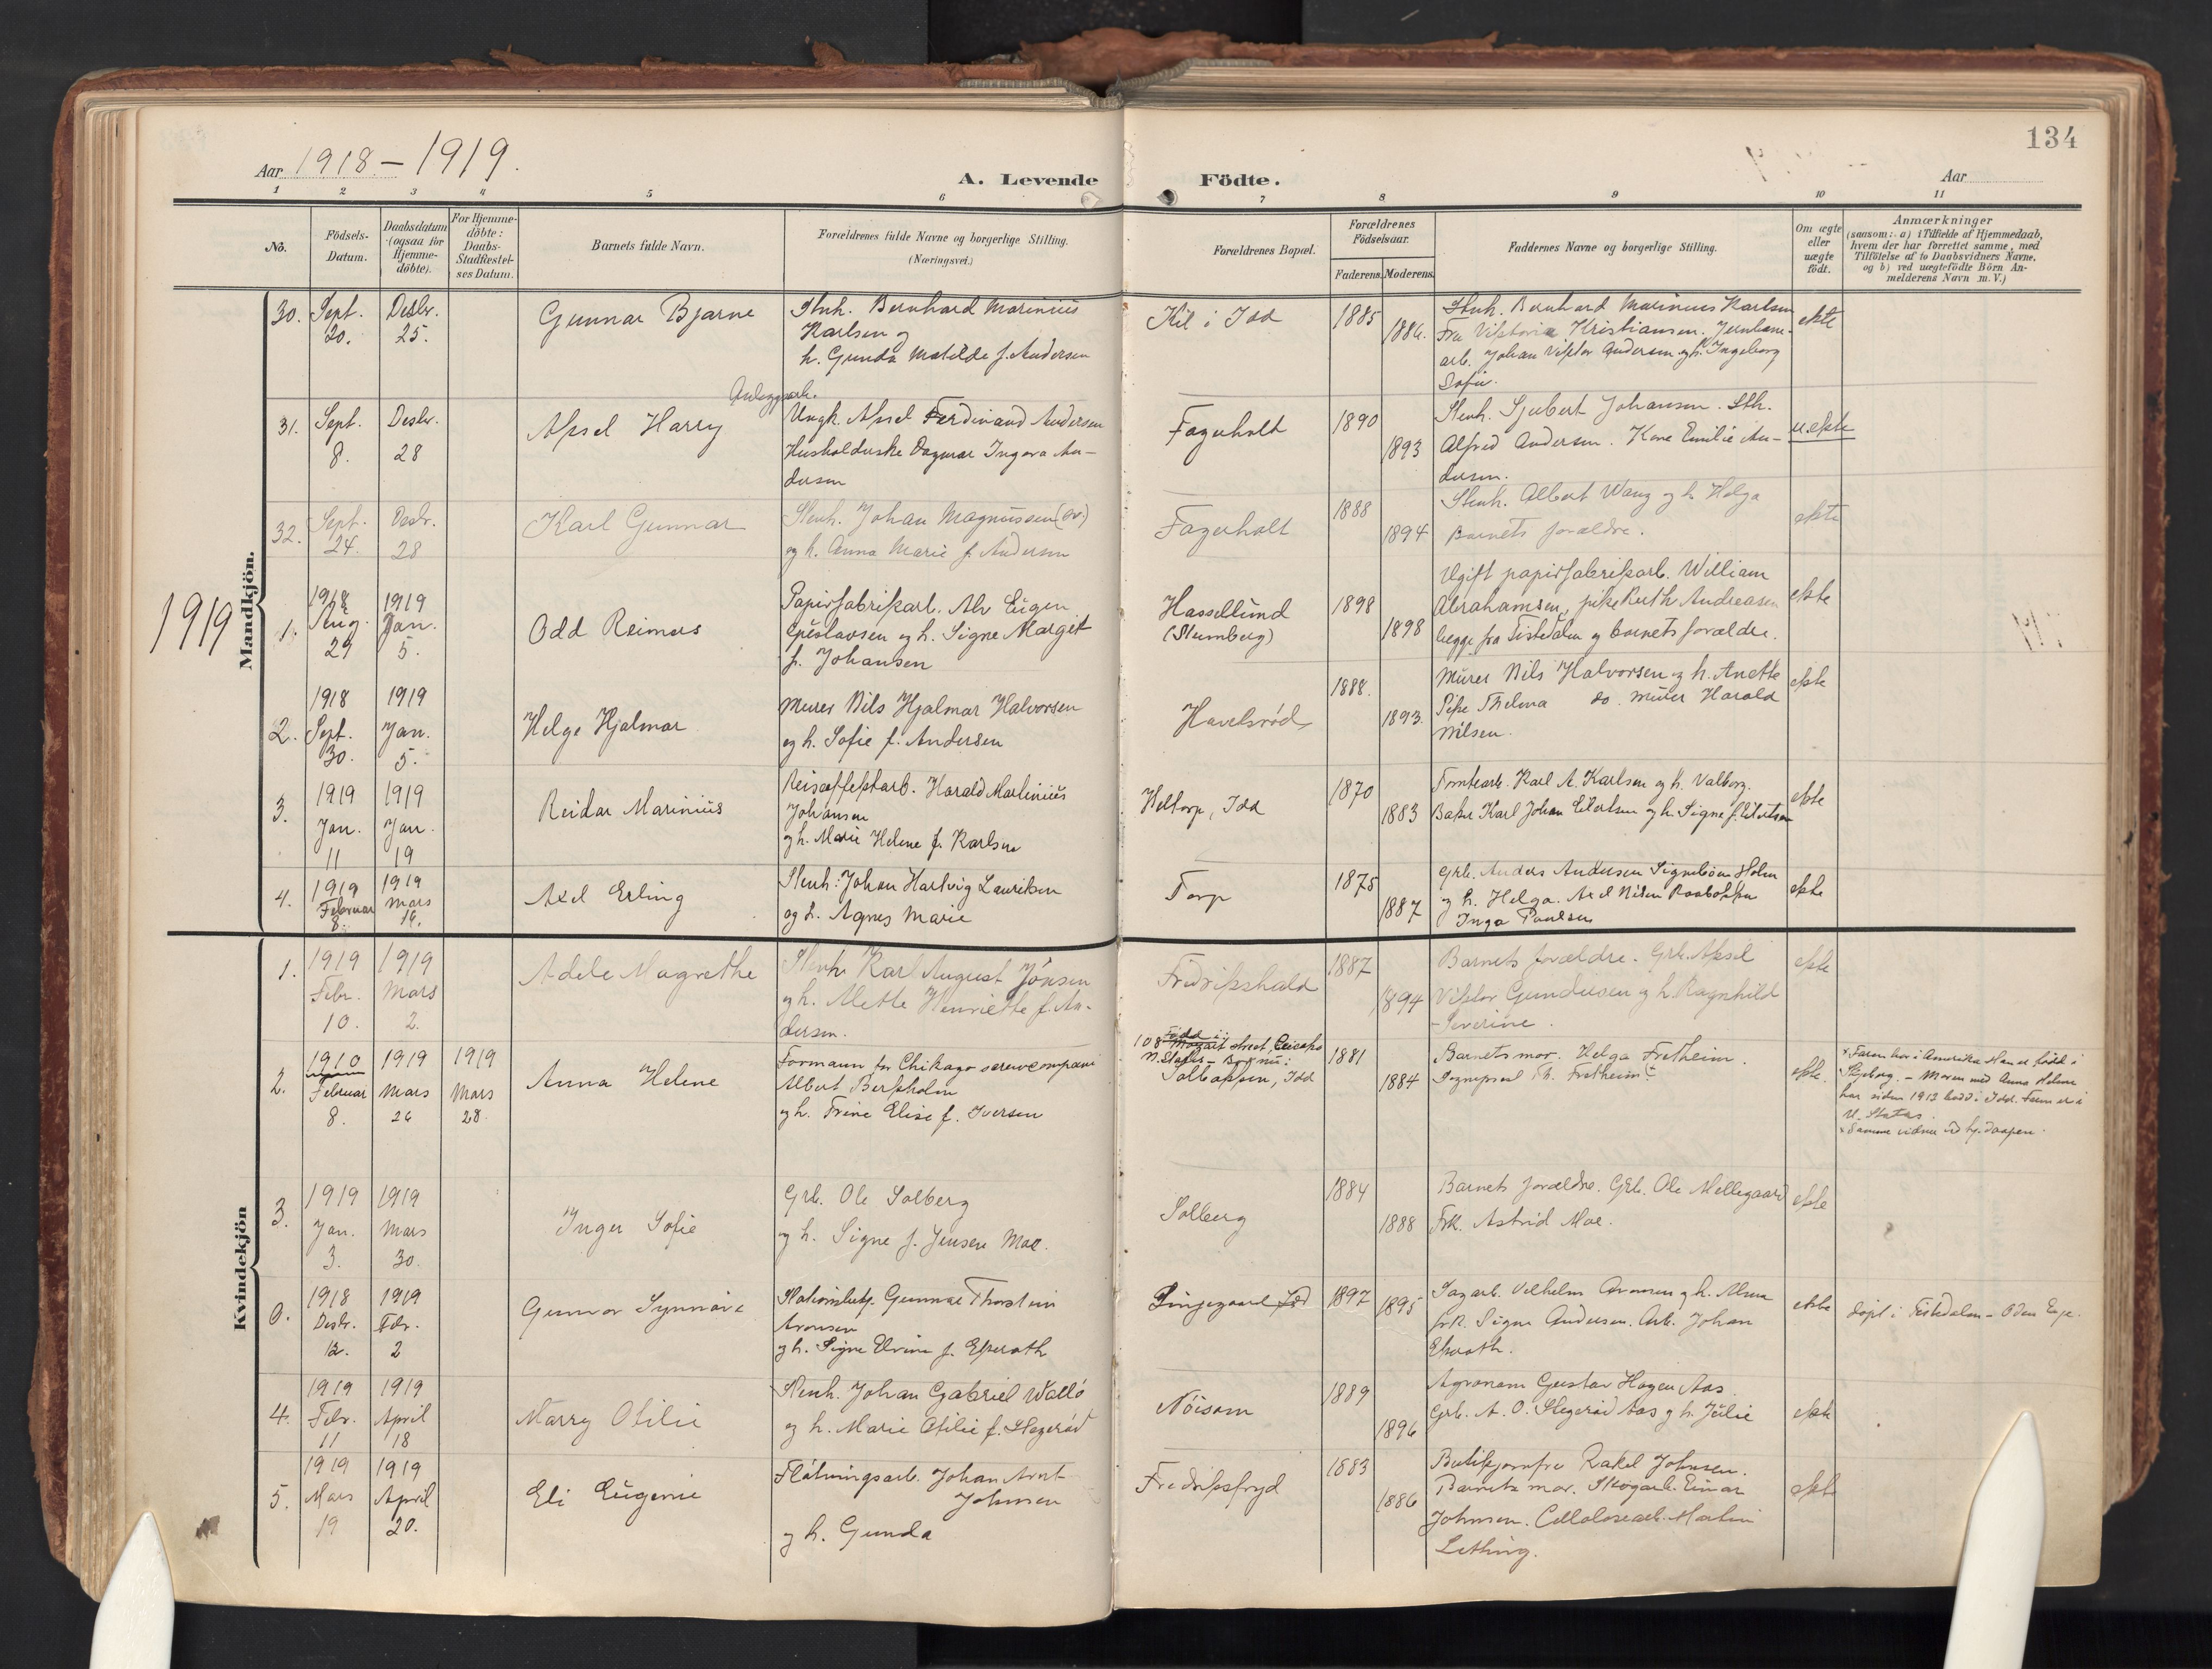 134
Aar 1918 – 1919.
A. Levende Födte.
Aar
1 2 3 4 5 6 7 8 9 10 11
No.
Födsels-Datum.
Daabsdatum (ogsaa for Hjemme-döbte).
For Hjemme-döbte: Daabs-Stadfæstel-ses Datum.
Barnets fulde Navn.
Forældrenes fulde Navne og borgerlige Stilling.
(Næringsvei.)
Forældrenes Bopæl.
Forældrenes Födselsaar.
Faderens. Moderens.
Faddernes Navne og borgerlige Stilling.
Om ægte eller uægte födt.
Anmærkninger
(saasom: a) i Tilfælde af Hjemmedaab,
hvem der har forrettet samme, med
Tilföielse af to Daabsvidners Navne,
og b) ved uægtefödte Börn An-
melderens Navn m. V.)
Mandkjön.
30. Sept. 20. Desbr. 25.
Gunnar Bjarne
Stnh. Bernhard Marinius
Karlsen og
h. Gunda Matilde f. Andersen
Kil i Idd
1885 1886.
Stnh. Bernhard Marinius Karlsen
Fru Viktoria Kristiansen. Jernbane-
arb. Johan Viktor Andersen og h. Ingeborg
Sofie.
ekte
31. Sept. 8. Desbr. 28
Aksel Harry
Anleggsarb.
Ungk. Aksel Ferdinand Andersen
Husholderske Dagmar Ingora An-
dersen
Fagerholt
1890 1893
Stenh. Sjubert Johansen. Sth.
Alfred Andersen. Kone Emilie An-
dersen.
u.ekte
32. Sept. 24. Desbr. 28
Karl Gunnar
Stenh. Johan Magnussen (sv.)
og h. Anna Marie f. Andersen
Fagerholt
1888 1894
Stenh. Albert Wang og h. Helga
Barnets forældre.
ekte
1919
1. 1918 Aug. 29 1919 Jan. 5.
Odd Reimars
Papirfabrikarb. Alv Eugen
Gustavsen og h. Signe Marget
f. Johansen
Hasselund
(Stumberg)
1898 1898
Ugift papirfabrikarb. William
Abrahamsen, pike Ruth Andreasen
begge fra Tistedalen og barnets forældre.
ekte
2. 1918 Sept. 30. 1919 Jan. 5.
Helge Hjalmar
Murer Nils Hjalmar Halvorsen
og h. Sofie f. Andersen
Havelsrød
1888. 1893.
Murer Nils Halvorsen og h. Anette
Pike Thelma do. murer Harald
Nilsen.
ekte
3. 1919 Jan. 11 1919 Jan. 19
Reidar Marinius
Harald Martinius
Johansen
og h. Marie Helene f. Karlsen
Veltorp, Idd
1870 1883
Tomtearb. Karl A. Karlsen og h. Valborg.
Baker Karl Johan Eilertsen og h. Signe f. Eilertsen
ekte
4. 1919 Februar 8. 1919 Mars 16.
Axel Erling
Stenh: Johan Hartvig Lauritsen
og h. Agnes Marie
Torp
1875 1887
Grb. Anders Andersen Signebøen Holm
og h. Helga. Axel Nilsen Raabakken
Inga Paulsen
ekte
Kvindekjön
1. 1919 Febr. 10. 1919 Mars 2.
Adele Magrethe
Stenh. Karl August Jönsen
og h. Mette Henriette f. An-
dersen.
Fredrikshald
1887 1894
Barnets forældre. Grb. Aksel
Viktor Gundersen og h. Ragnhild
Severine.
ekte
2. 1910 Februar 8. 1919 Mars 26 1919 Mars 28.
Anna Helene
Formann for Chikago screwcompani
Albert Berkholm
og h. Trine Elise f. Iversen
Född i:
108 Mozart street, Chicago
N. States – Bor nu:
Solbakken, Idd
1881 1884
Barnets mor. Helga Fretheim.
Sogneprest Th. Fretheim.
ekte.
× Faren bor i Amerika Han er född i
Skjeberg. – Moren med Anna Helene
har siden 1913 bodd i Idd. Faren er i
U. Statas.
× Samme vidner ved hj. daapen.
3. 1919 Jan. 3. 1919 Mars 30.
Inger Sofie
Grb. Ole Solberg
og h. Signe f. Jensen Moe.
Solberg
1884 1888
Barnets forældre. Grb. Ole Mellegaard
Frk. Astrid Moe.
ekte
0. 1918 Desbr. 12. 1919 Febr. 2
Gunnor Synnöve
Stationsbetj. Gunnar Thorstein
Aronsen
og h. Signe Elvine f. Ekeroth
Lingegaard Idd
1897 1895
Sagarb. Vilhelm Aronsen og h. Alma
frk. Signe Andersen. Arb. Johan
Ekeroth.
ekte
döpt i Tistedalen –
4. 1919 Febr. 11 1919 April 18
Marry Otilie
Stenh. Johan Gabriel Wallö
og h. Marie Otilie f. Stegeröd
Nöisom
1889 1896
Agronom Gustav Hagen Aas.
Grb. A. O. Stegeröd Aas og h. Julie
ekte
5. 1919 Mars 19 1919 April 20.
Eli Eugenie
Flötningsarb. Johan Arnt
Johnsen
og h. Gunda
Fredriksfryd
1883 1886
Butikjomfru Rakel Johnsen.
Barnets mor. Skogarb. Einar
Johnsen. Cellolosearb. Martin
Lething.
ekte